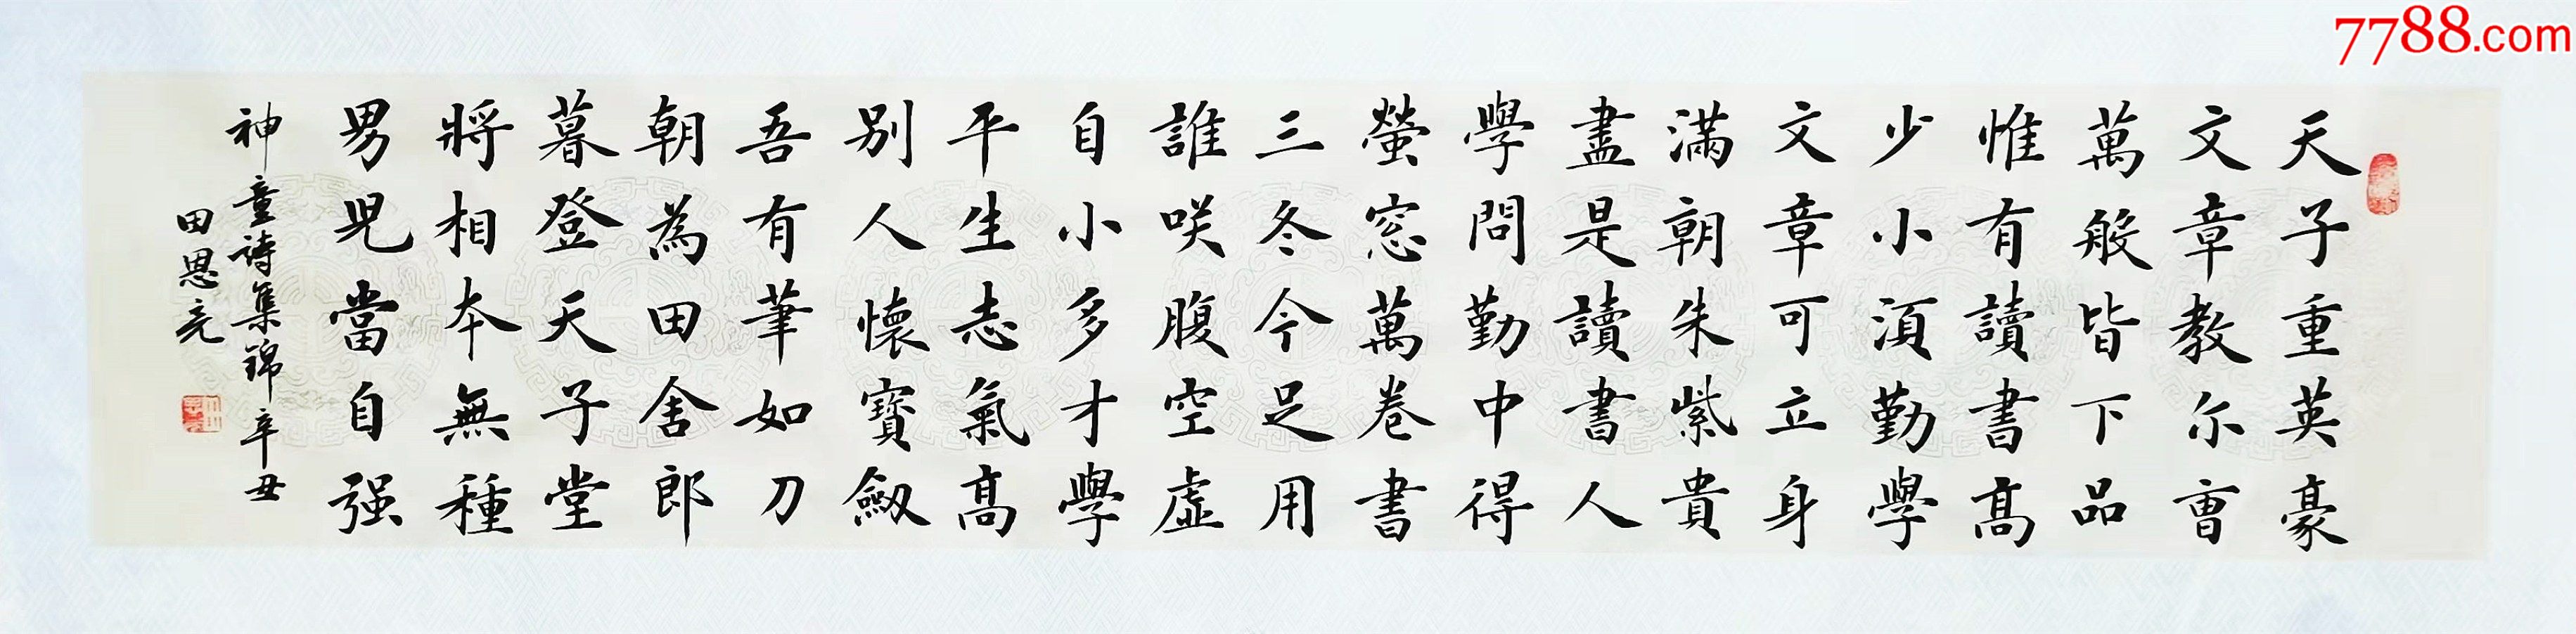 天子重英豪
文章教尔曹
萬般皆下品
惟有讀書高
少小須勤學
文章可立身
滿朝朱紫貴
盡是讀書人
學問勤中得
螢窓萬卷書
三冬今足用
誰咲腹空虛
自小多才學
平生志氣高
別人懷寶劔
吾有筆如刀
朝為田舍郎
暮登天子堂
將相本無種
男児當自强
神童詩集錦辛丑
田恩亮
7788.com